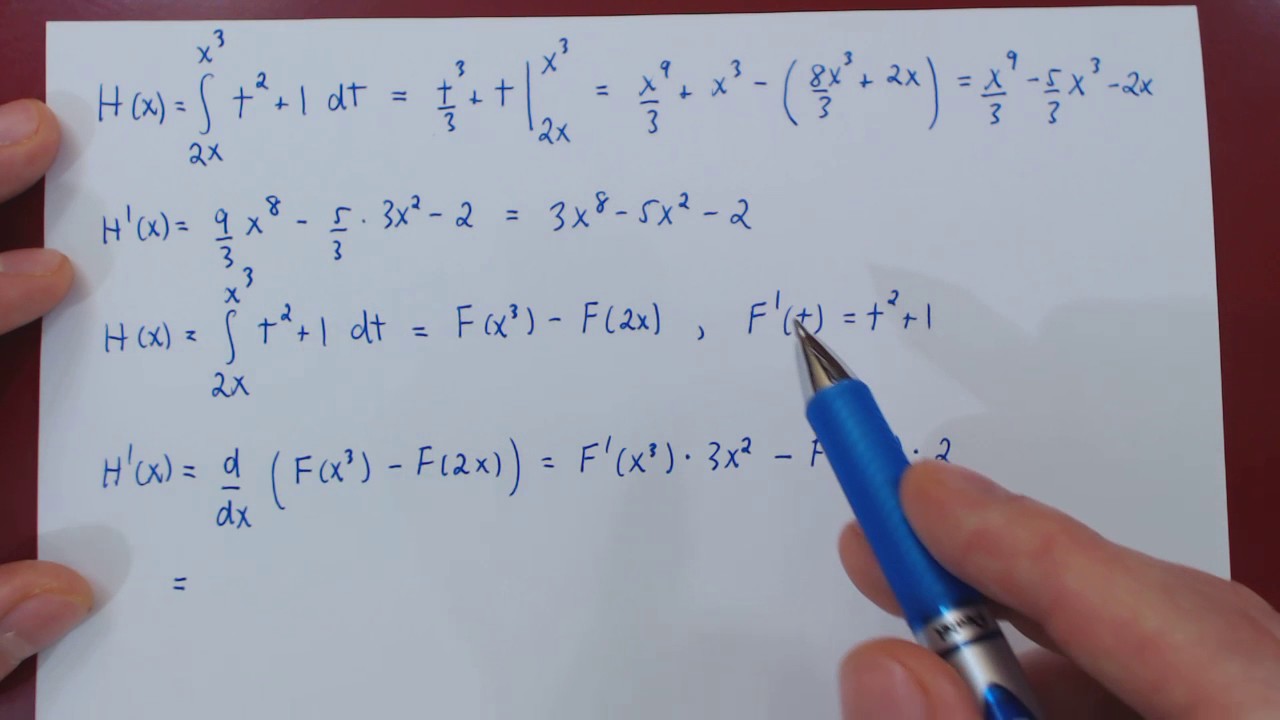 H(x) = ∫_{2x}^{x³} t² + 1 dt = t³/3 + t |_{2x}^{x³} = x⁹/3 + x³ − (8x³/3 + 2x) = x⁹/3 − 5/3 x³ − 2x
H'(x) = 9/3 x⁸ − 5/3 · 3x² − 2 = 3x⁸ − 5x² − 2
H(x) = ∫_{2x}^{x³} t² + 1 dt = F(x³) − F(2x) , F'(t) = t² + 1
H'(x) = d/dx (F(x³) − F(2x)) = F'(x³) · 3x² − F · 2
=